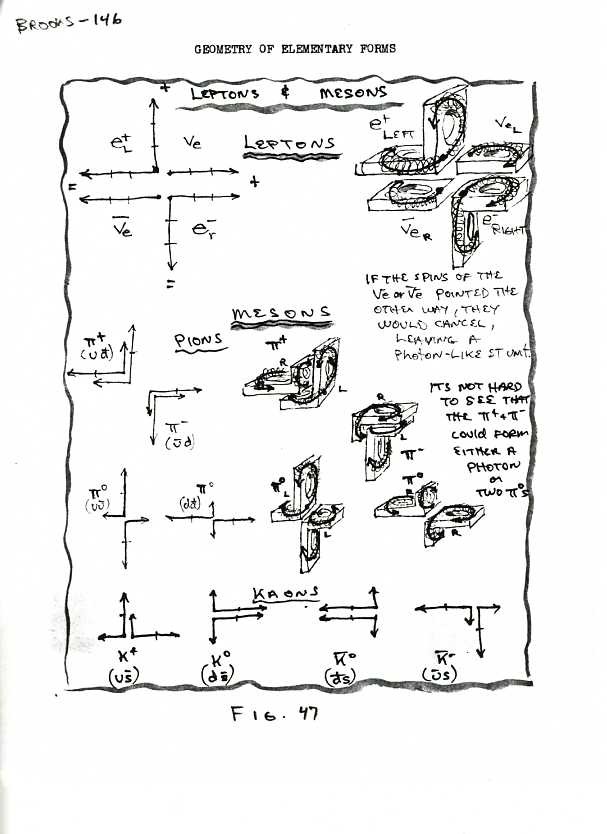 BROOKS-146
GEOMETRY OF ELEMENTARY FORMS
LEPTONS & MESONS
+
e⁺L
νe
LEPTONS
=
+
ν̄e
e⁻r
=
e⁺ LEFT
νeL
ν̄eR
e⁻ RIGHT
IF THE SPINS OF THE
νe or ν̄e POINTED THE
OTHER WAY, THEY
WOULD CANCEL,
LEAVING A
PHOTON-LIKE ST UNIT.
MESONS
PIONS
π⁺
(ud̄)
π⁺
R
L
π⁻
(ūd)
R
L
π⁻
IT'S NOT HARD
TO SEE THAT
THE π⁺ & π⁻
COULD FORM
EITHER A
PHOTON
OR
TWO π⁰s
π⁰
(uū)
π⁰
(dd̄)
π⁰
L
L
π⁰
R
R
KAONS
K⁺
(us̄)
K⁰
(ds̄)
K̄⁰
(d̄s)
K̄⁻
(ūs)
FIG. 47